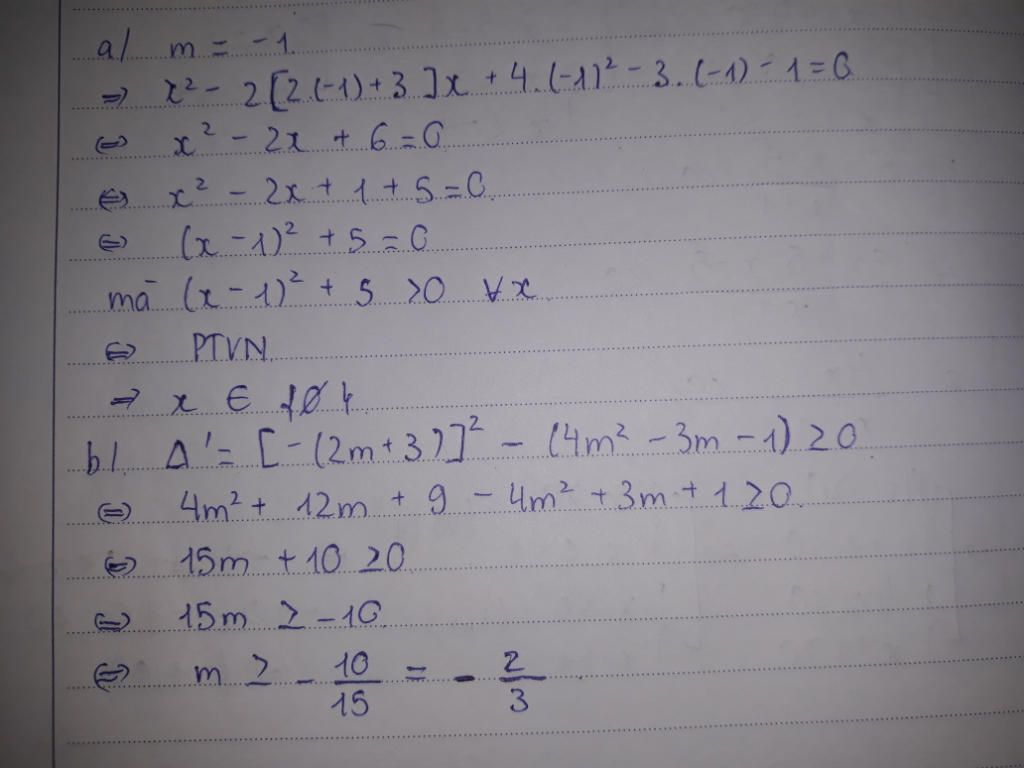 a/ m = -1.
⇒ x² - 2[2(-1)+3]x + 4.(-1)² - 3.(-1) - 1 = 0
⇔ x² - 2x + 6 = 0
⇔ x² - 2x + 1 + 5 = 0.
⇔ (x - 1)² + 5 = 0
mà (x - 1)² + 5 >0 ∀x
⇔ PTVN.
⇒ x ∈ {∅}
b/. Δ' = [-(2m+3)]² - (4m² - 3m - 1) ≥ 0
⇔ 4m² + 12m + 9 - 4m² + 3m + 1 ≥ 0.
⇔ 15m + 10 ≥ 0
⇔ 15m ≥ -10.
⇔ m ≥ - 10/15 = - 2/3